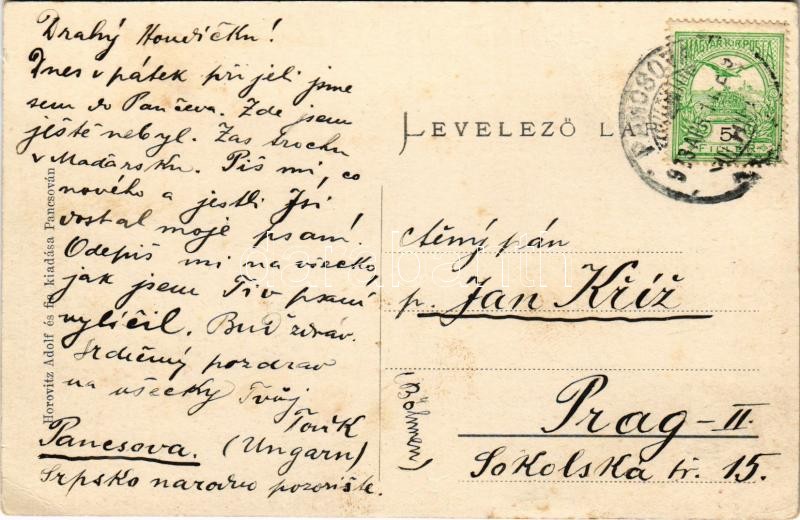 Drahý Honzíčku!
Dnes v pátek přijeli jsme
sem do Pančeva. Zde jsem
ještě nebyl. Zas trochu
v Maďarsku. Piš mi, co
nového a jestli Jsi
dostal moje psaní.
Odepiš mi na všecko,
jak jsem Ti v psaní
vylíčil. Buď zdráv.
Srdečný pozdrav
na všecky Tvůj
Pancsova. (Ungarn)
Srpsko narodno pozorište.
Horovitz Adolf és fia kiadása Pancsován
LEVELEZŐ LAP
MAGYAR KIR. POSTA
5
FILLÉR
Ctěný pán
p. Jan Kříž
Prag-II.
(Böhmen)
Sokolska tř. 15.